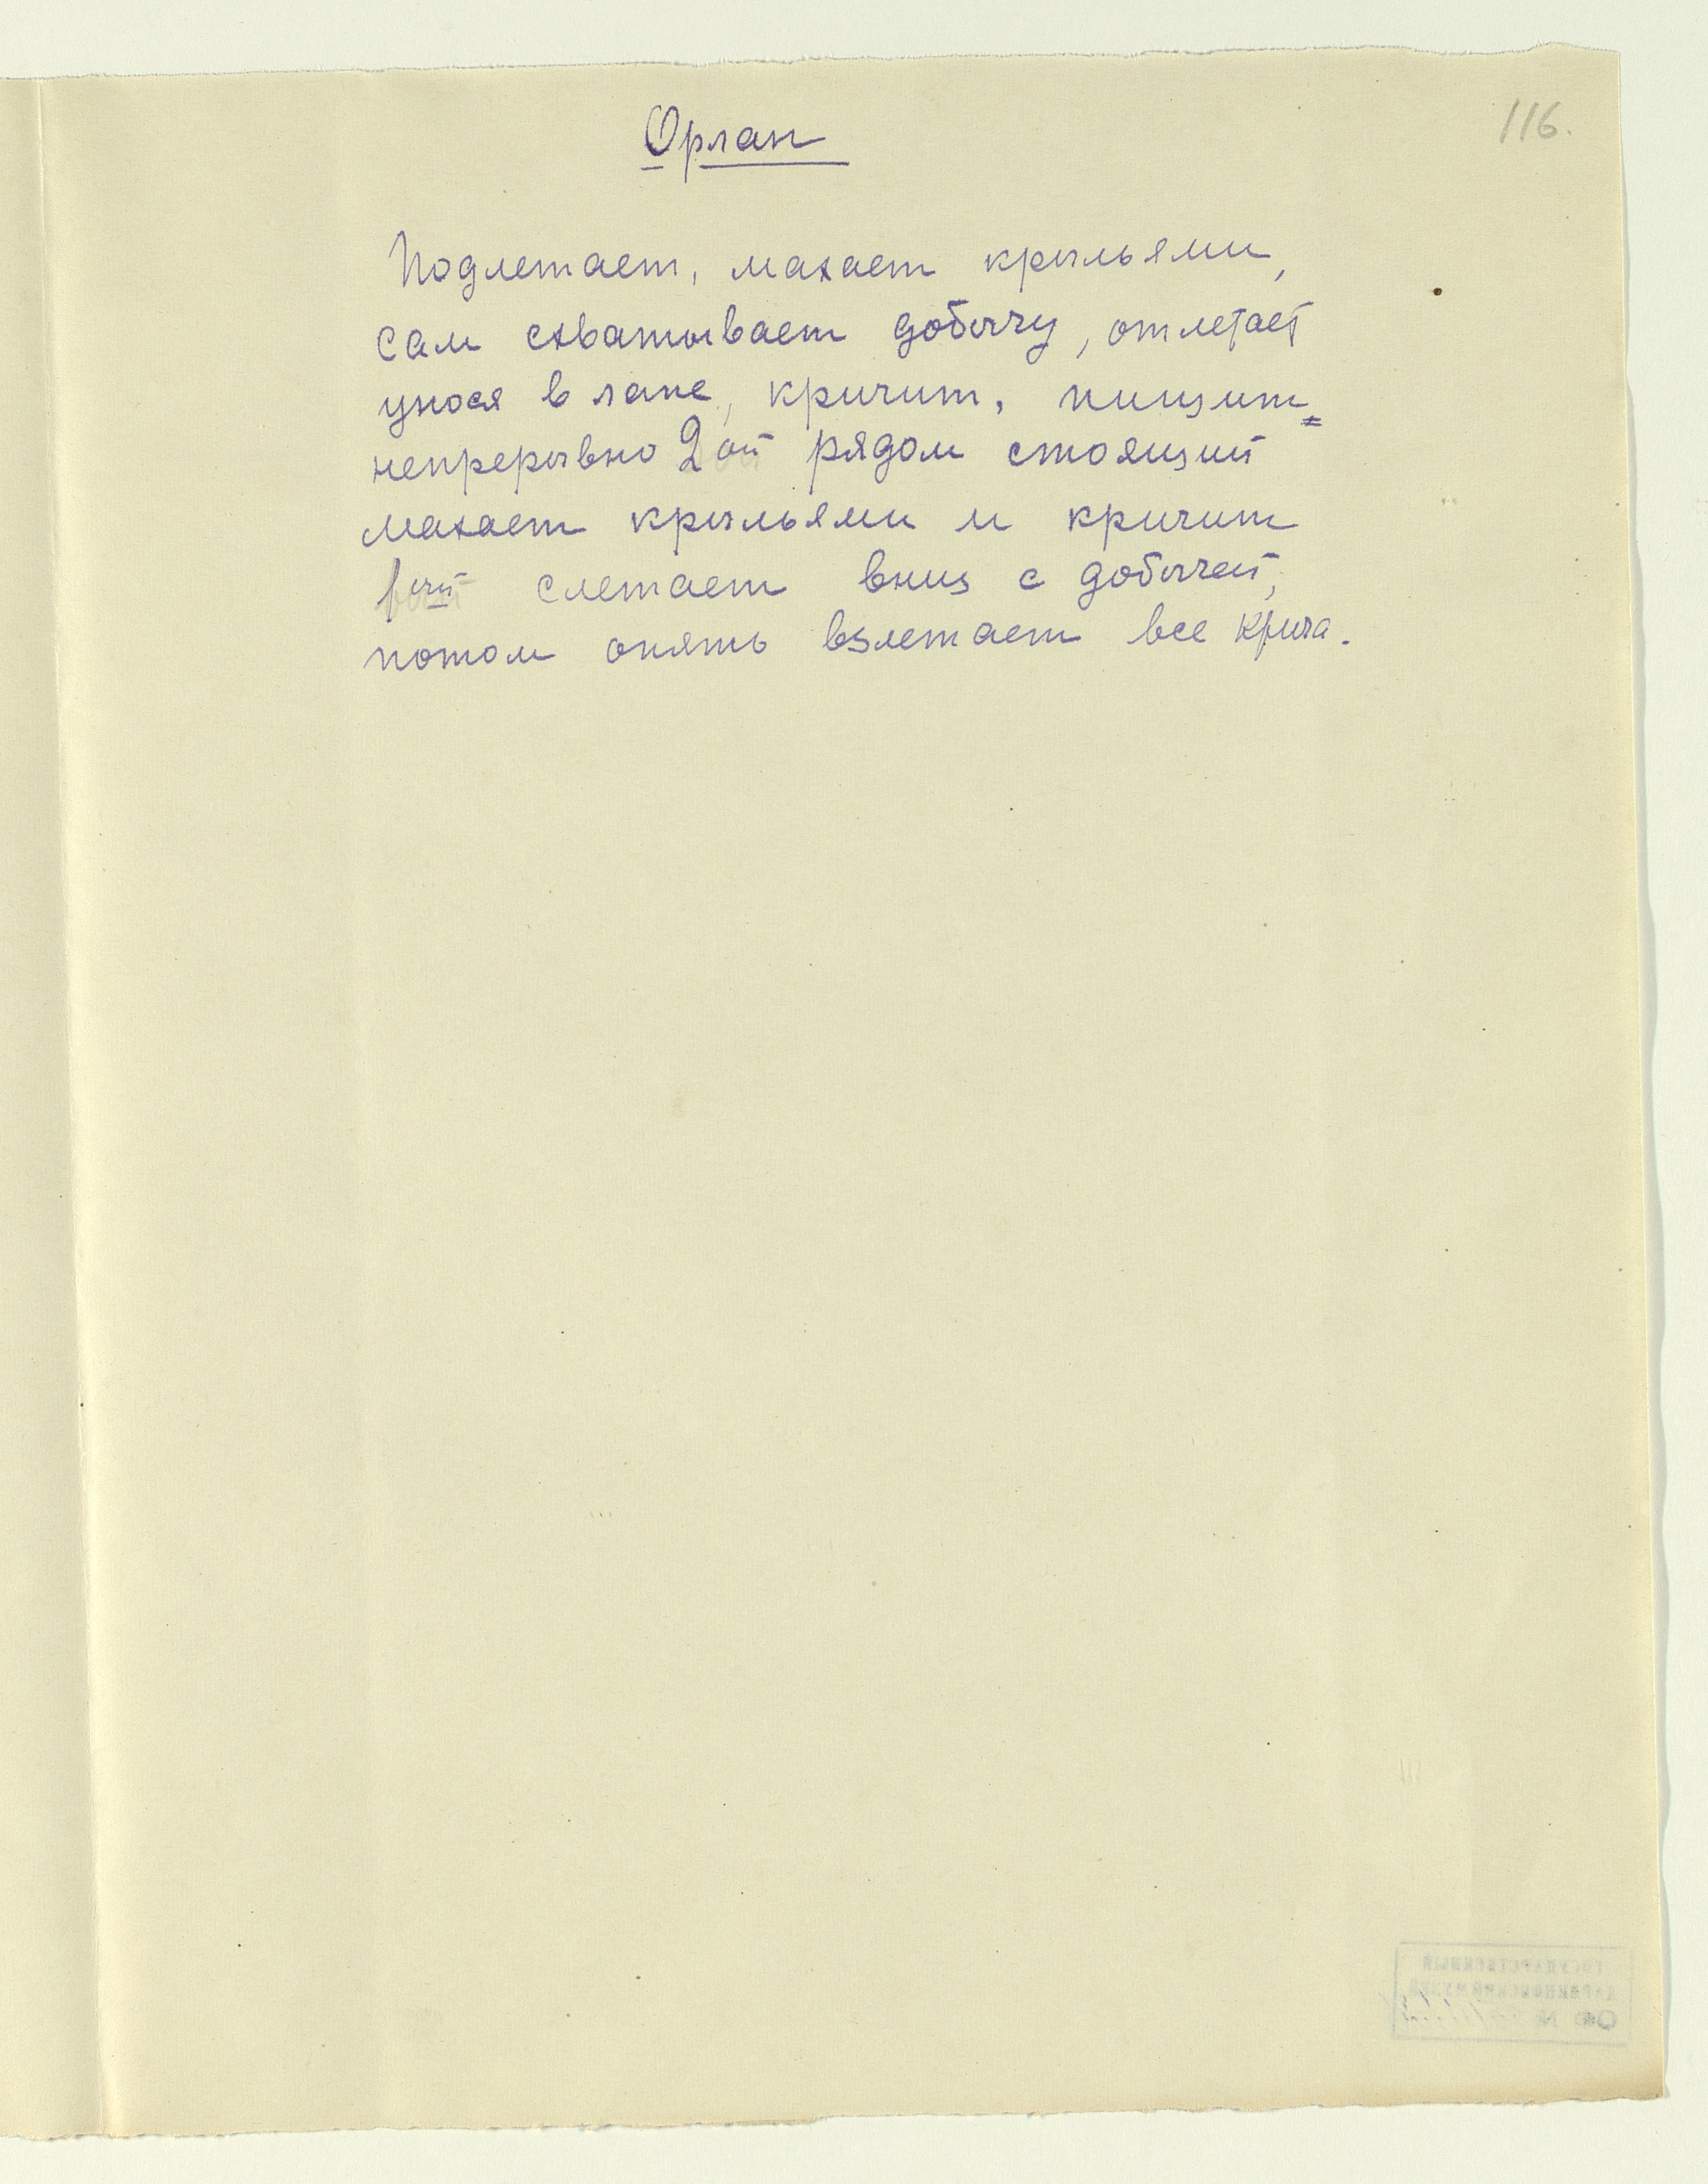 116.
Орлан
Подлетает, махает крыльями,
сам схватывает добычу, отлетает
унося в лапе, кричит, пищит
непрерывно 2ой рядом стоящий
махает крыльями и кричит
1ый слетает вниз с добычей,
потом опять взлетает все крича.
ГОСУДАРСТВЕННЫЙ
ДАРВИНОВСКИЙ МУЗЕЙ
ОФ №